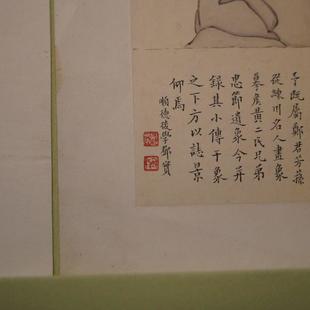 予既屬鄭君芳蓀
從練川名人畫象
摹侯黃二氏兄弟
忠節遺象今并
錄其小傳于象
之下方以誌景
仰焉
順德後學鄧實